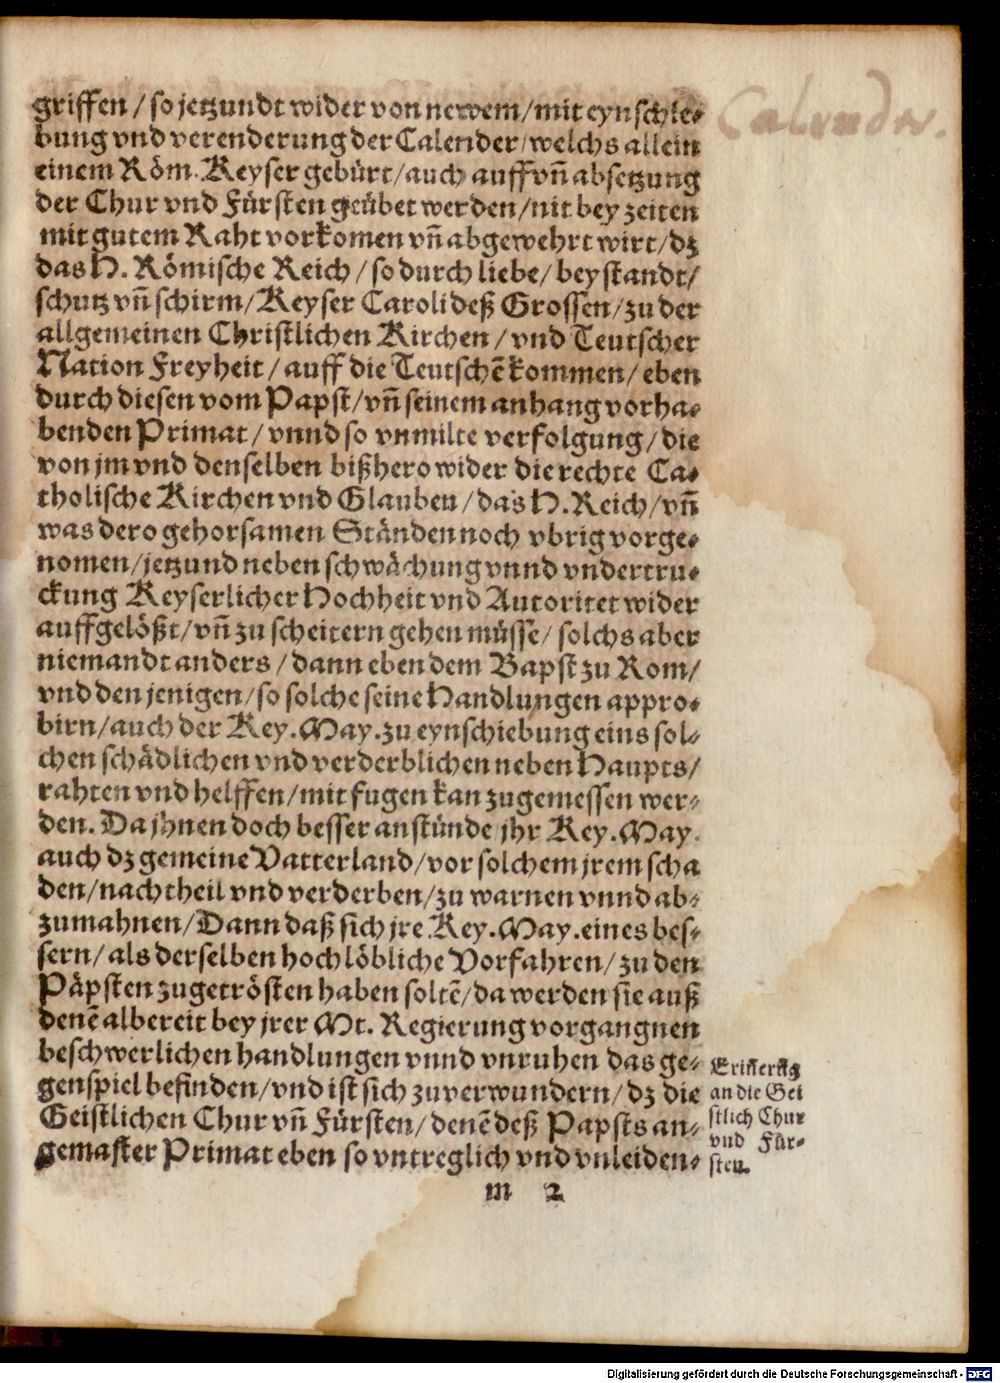 griffen / so jetzundt wider von newem/mit eynschle⸗
bung vnd verenderung der Calender/welchs allein
einem Röm. Keyser gebürt/auch auff vñ absetzung
der Chur vnd Fürsten geübet werden/nit bey zeiten
mit gutem Raht vorkomen vñ abgewehrt wirt/dz
das H. Römische Reich / so durch liebe/ beystandt/
schutz vñ schirm/Keyser Caroli deß Grossen/zu der
allgemeinen Christlichen Kirchen / vnd Teutscher
Nation Freyheit / auff die Teutschē kommen/ eben
durch diesen vom Papst/vñ seinem anhang vorha⸗
benden Primat / vnnd so vnmilte verfolgung/die
von jm vnd denselben bißhero wider die rechte Ca⸗
tholische Kirchen vnd Glauben /das H. Reich/vñ
was dero gehorsamen Ständen noch vbrig vorge⸗
nomen/jetzund neben schwächung vnnd vndertru⸗
ckung Keyserlicher Hochheit vnd Autoritet wider
auffgelößt/vñ zu scheitern gehen müsse/ solchs aber
niemandt anders / dann eben dem Bapst zu Rom/
vnd den jenigen/so solche seine Handlungen appro⸗
birn/auch der Key. May. zu eynschiebung eins sol⸗
chen schädlichen vnd verderblichen neben Haupts/
rahten vnd helffen/mit fugen kan zugemessen wer⸗
den. Da jhnen doch besser anstünde jhr Key. May.
auch dz gemeine Vatterland/vor solchem jrem scha
den/nachtheil vnd verderben/zu warnen vnnd ab⸗
zumahnen/Dann daß sich jre Key. May. eines bes⸗
sern/als derselben hochlöbliche Vorfahren/zu den
Päpsten zugetrösten haben soltē/da werden sie auß
denē albereit bey jrer Mt. Regierung vorgangnen
beschwerlichen handlungen vnnd vnruhen das ge⸗
genspiel befinden/vnd ist sich zuverwundern/dz die
Geistlichen Chur vñ Fürsten/denē deß Papsts an⸗
gemaster Primat eben so vntreglich vnd vnleiden⸗
m 2
Calender.
Erinerūg
an die Gei
stlich Chur
vnd Für⸗
sten.
Digitalisierung gefördert durch die Deutsche Forschungsgemeinschaft - DFG